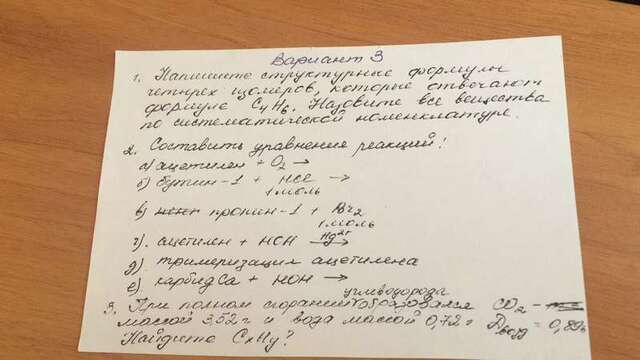 Вариант 3
1. Напишите структурные формулы
четырех изомеров, которые отвечают
формуле C4H6. Назовите все вещества
по систематической номенклатуре.
2. Составить уравнения реакций!
а) ацетилен + O2 →
б) бутин-1 + HCl →
1 моль
в) пропин-1 + Br2
1 моль
г). ацетилен + HOH Hg2+ →
д) тримеризация ацетилена
е). карбид Ca + HOH →
углеводорода
3. При полном сгорании образовался CO2 -
массой 3,52 г и вода массой 0,72 г Dвозд = 0,896
Найдите CxHy?